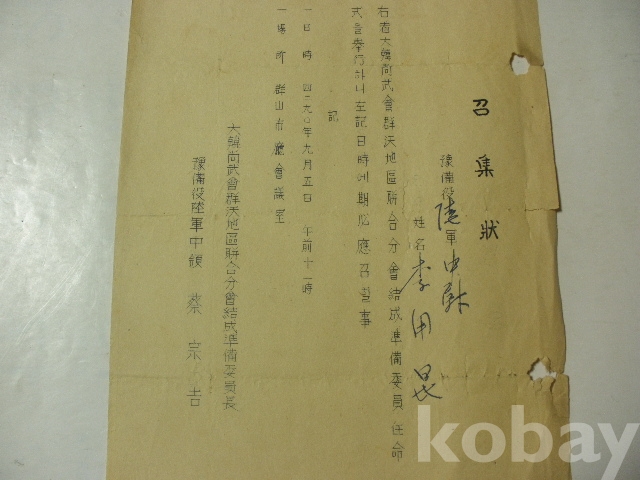 召集狀
豫備役 陸軍中尉
姓名 李用
右者大韓尚武會群沃地區聯合分會結成準備委員任命
式을擧行하니左記日時에期必應召할事
記
一日時 四二九〇年九月五日 午前十一時
一場所 群山市廳會議室
大韓尚武會群沃地區聯合分會結成準備委員長
豫備役陸軍中領 蔡宗吉
kobay